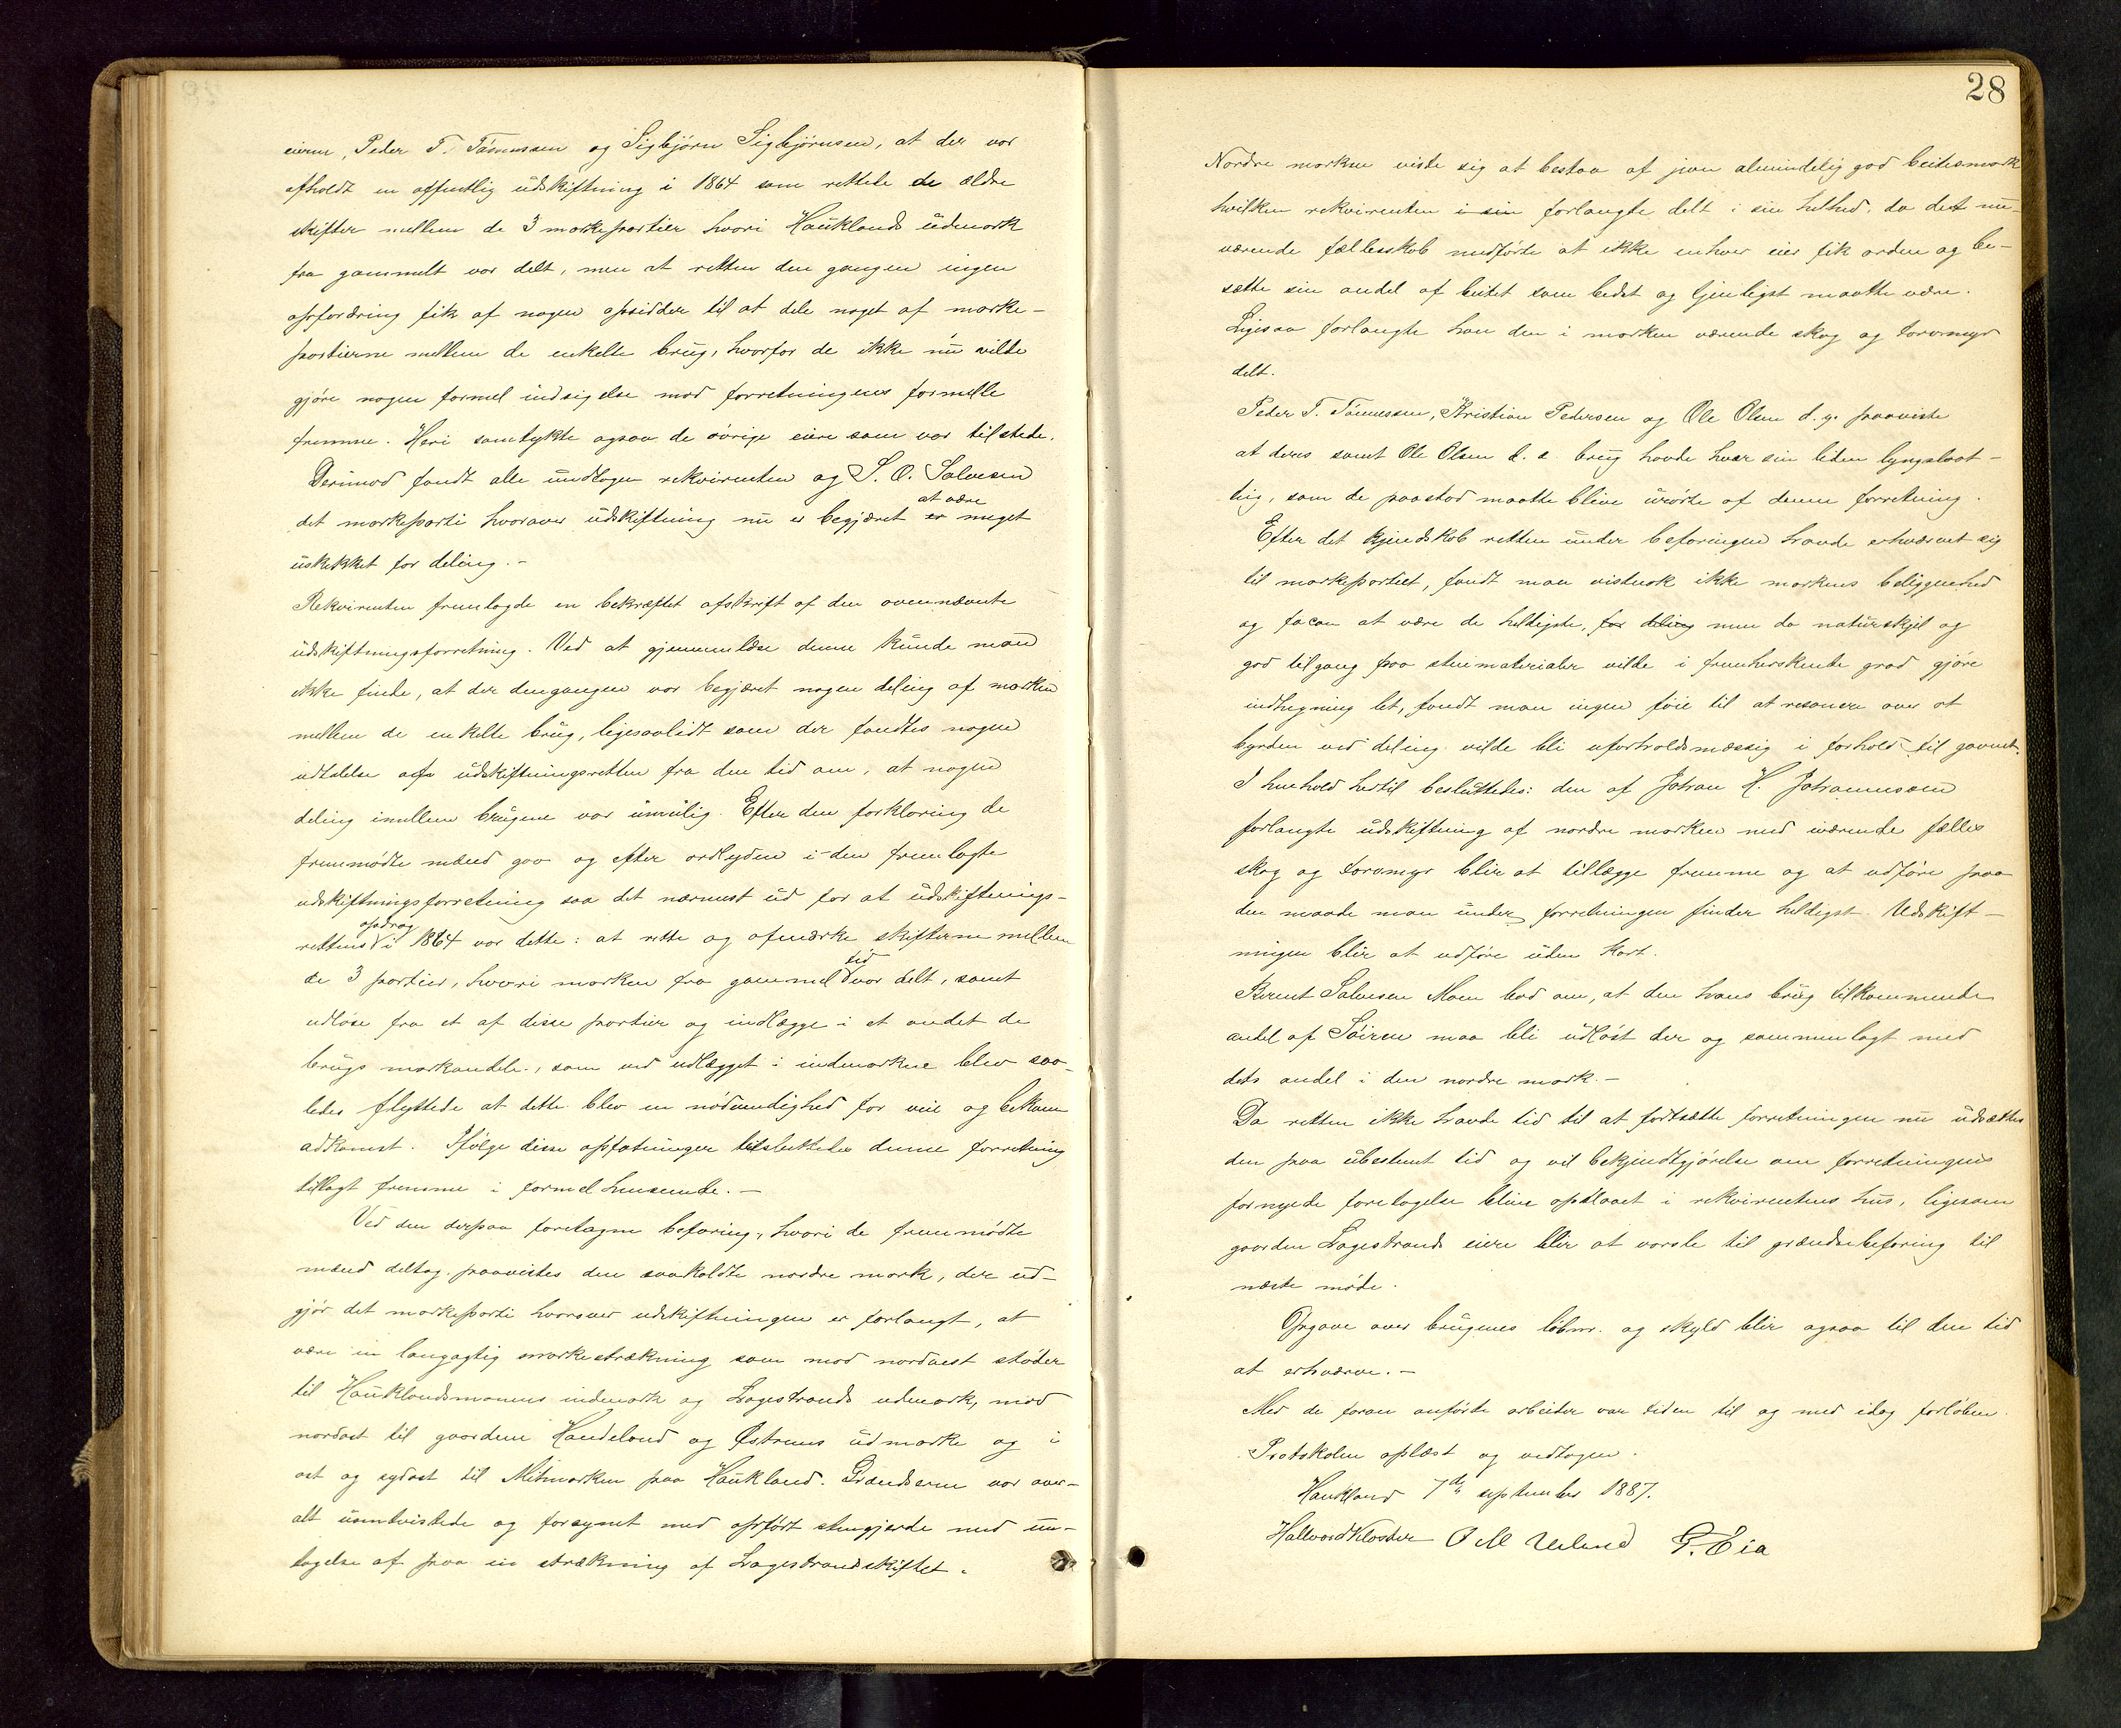 eierne, Peder T. Tönnessen og Sigbjörn Sigbjörnsen, at der var
afholdt en offentlig udskiftning i 1864 som rettede de ældre
skifter mellem de 3 markepartier hvori Hauklands udmark
fra gammelt var delt, men at retten den gangen ingen
opfordring fik af nogen opsidder til at dele noget af marke-
partierne mellem de enkelte brug, hvorfor de ikke nu vilde
gjöre nogen formel indsigelse mod forretningens formelle
fremme. Heri samtykte ogsaa de övrige eiere som var tilstede.
Derimod fandt alle undtagen rekvirenten og S. O. Salvesen
det markeparti hvorover udskiftning nu er begjæret er at være meget
uskikket for deling.-
Rekvirenten fremlagde en bekræftet afskrift af den ovennævnte
udskiftningsforretning. Ved at gjennemlæse denne kunde man
ikke finde, at der dengangen var begjæret nogen deling af marken
mellem de enkelte brug, ligesaalidt som der fandtes nogen
udtalelse af udskiftningsretten fra den tid om, at nogen
deling imellem brugene var umulig. Efter den forklaring de
fremmödte mænd gav og efter ordlyden i den fremlagte
udskiftningsforretning saa det nærmest ud for at udskiftnings-
rettens opdrag i 1864 var dette: at rette og afmærke skifterne mellem
de 3 partier, hvori marken fra gammel tid var delt, samt
udlöse fra et af disse partier og indlægge i et andet de
brugs markandele, som ved udlægget i indmarkene blev saa-
ledes flyttede at dette blev en nödvendighed for veie og bekvem
adkomst. Ifölge disse opfatninger besluttedes denne forretning
tillagt fremme i formel henseende.-
Ved den derpaa foretagne befaring, hvori de fremmödte
mænd deltog paavistes den saakaldte nordre mark, der ud-
gjör det markeparti hvorover udskiftningen er forlangt, at
være en langagtig markestrækning som mod nordvest stöder
til Hauklandsmonens indmark og Lagestrands udmark, mod
nordost til gaardene Handeland og Østrems udmarke og i
ost og sydost til Mitmarken paa Haukland. Grændserne var over-
alt uomtvistede og forsynet med opfört stengjerde med un-
tagelse af paa en strækning af Lagestrandskiftet.
28
Nordre marken viste sig at bestaa af jevn almindelig god beitesmark
hvilken rekvirenten i sin forlangte delt i sin helhed, da det nu-
værende fællesskab medförte at ikke enhver eier fik ordne og be-
sætte sin andel af beitet som bedst og tjenligst maatte være.
Ligesaa forlangte han den i marken værende skog og torvmyr
delt.
Peder T. Tönnessen, Kristian Pedersen og Ole Olsen d. y. paaviste
at deres samt Ole Olsen d. æ. brug havde hver sin liden lyngslaat-
teig, som de paastod maatte blive urörte af denne forretning.
Efter det kjendskab retten under befaringen havde erhvervet sig
til markepartiet, fandt man vistnok ikke markens beliggenhed
og facon at være de heldigste, for deling men da naturskjel og
god tilgang paa stenmaterialer vilde i fremherskende grad gjöre
indhegning let, fandt man ingen föie til at resonere over at
byrden ved deling vilde bli uforholdsmæssig i forhold til gavnet.
I henhold hertil besluttedes: den af Johan H. Johannessen
forlangte udskiftning af nordre marken med iværende fælles
skog og torvmyr blir at tillægge fremme og at udföre paa
den maade man under forretningen finder heldigst. Udskift-
ningen blir at udföre uden kart.
Berent Salvesen Moen bad om, at den hans brug tilkommende
andel af Söiren maa bli udlöst der og sammenlagt med
dets andel i den nordre mark.-
Da retten ikke havde tid til at fortsætte forretningen nu udsættes
den paa ubestemt tid og vil bekjendtgjörelse om forretningens
fornyede foretagelse blive opslaaet i rekvirentens hus, ligesom
gaarden Lagestrands eiere blir at varsle til grændsebefaring til
næste möde.
Opgave over brugenes löbnr. og skyld blir ogsaa til den tid
at erhverve.-
Med de foran anförte arbeider var tiden til og med idag forlöben.
Protokolen oplæst og vedtagen.
Haukland 7de september 1887.
Hallvard Kloster O M Ueland G. Eia